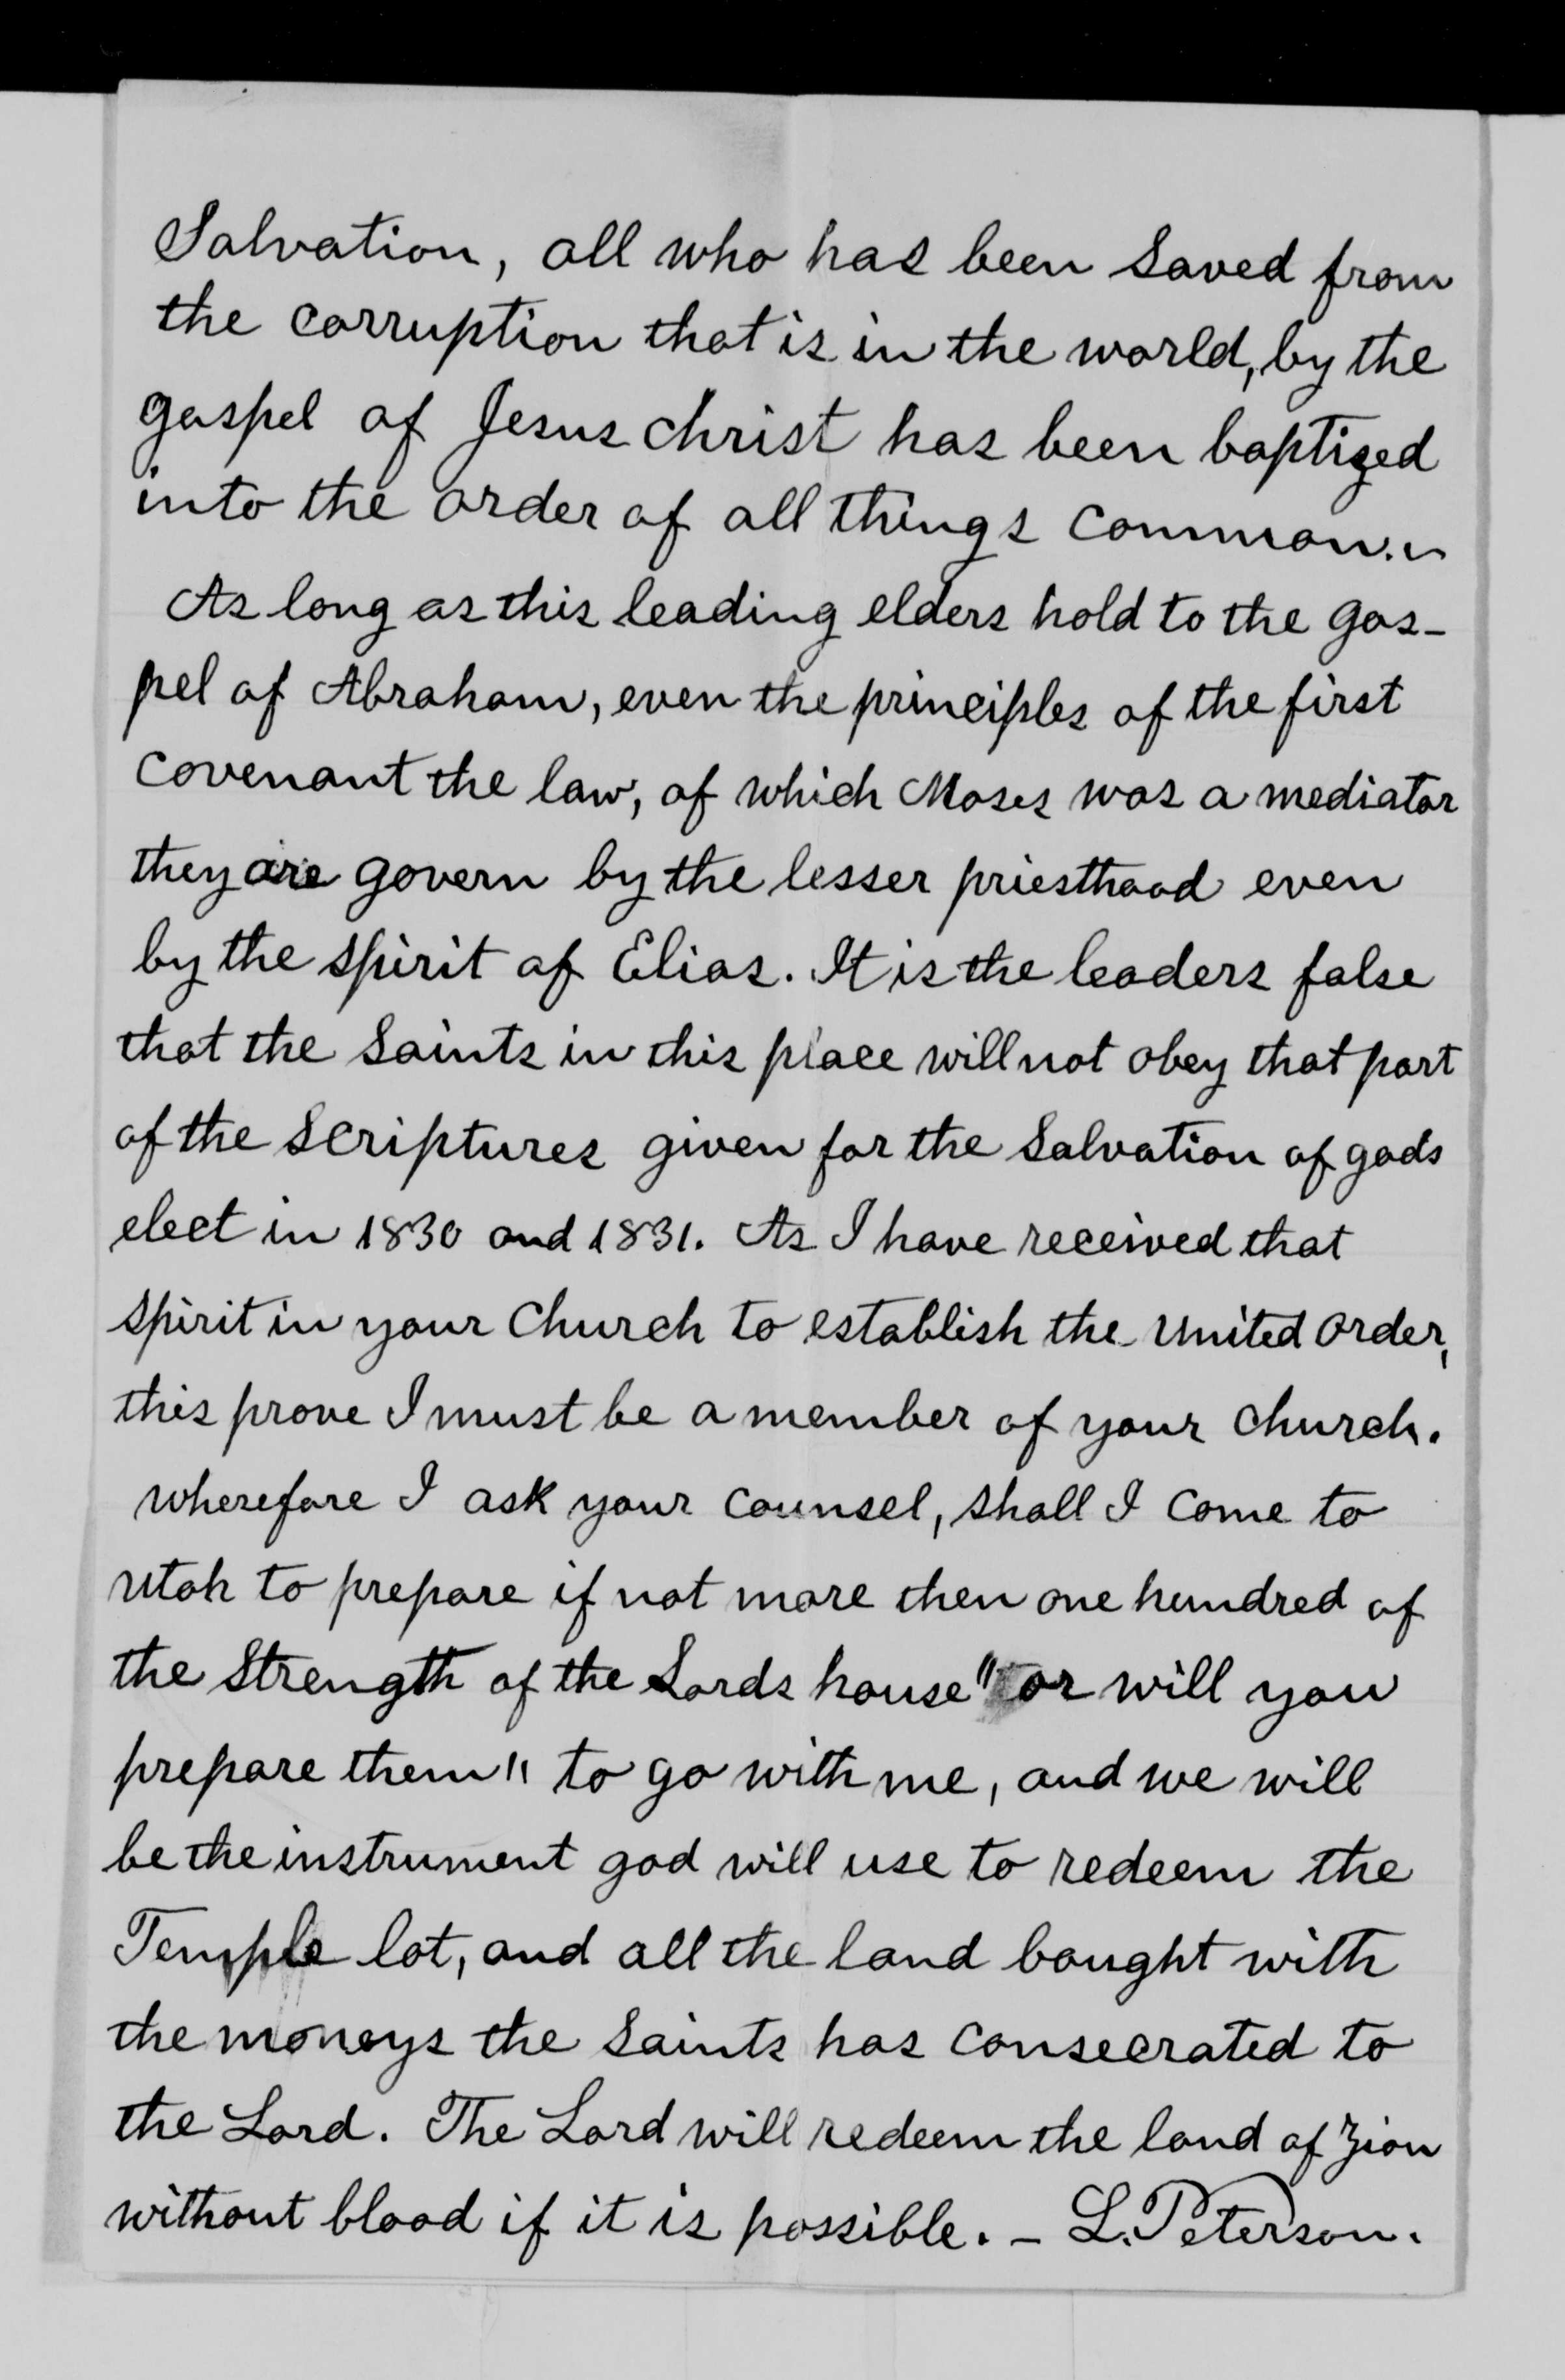 Salvation, all who has been Saved from
the corruption that is in the world, by the
gospel of Jesus christ has been baptized
into the order of all things common.
As long as this leading elders hold to the gos-
pel of Abraham, even the principles of the first
covenant the law, of which Moses was a mediator
they are govern by the lesser priesthood even
by the spirit of Elias. It is the leaders false
that the Saints in this place will not obey that part
of the Scriptures given for the Salvation of gods
elect in 1830 and 1831. As I have received that
spirit in your Church to establish the United order,
this prove I must be a member of your church.
wherefore I ask your counsel, shall I come to
Utah to prepare if not more then one hundred of
the Strength of the Lords house" or will you
prepare them" to go with me, and we will
be the instrument god will use to redeem the
Temple lot, and all the land bought with
the moneys the Saints has consecrated to
the Lord. The Lord will redeem the land of Zion
without blood if it is possible. – L. Peterson.